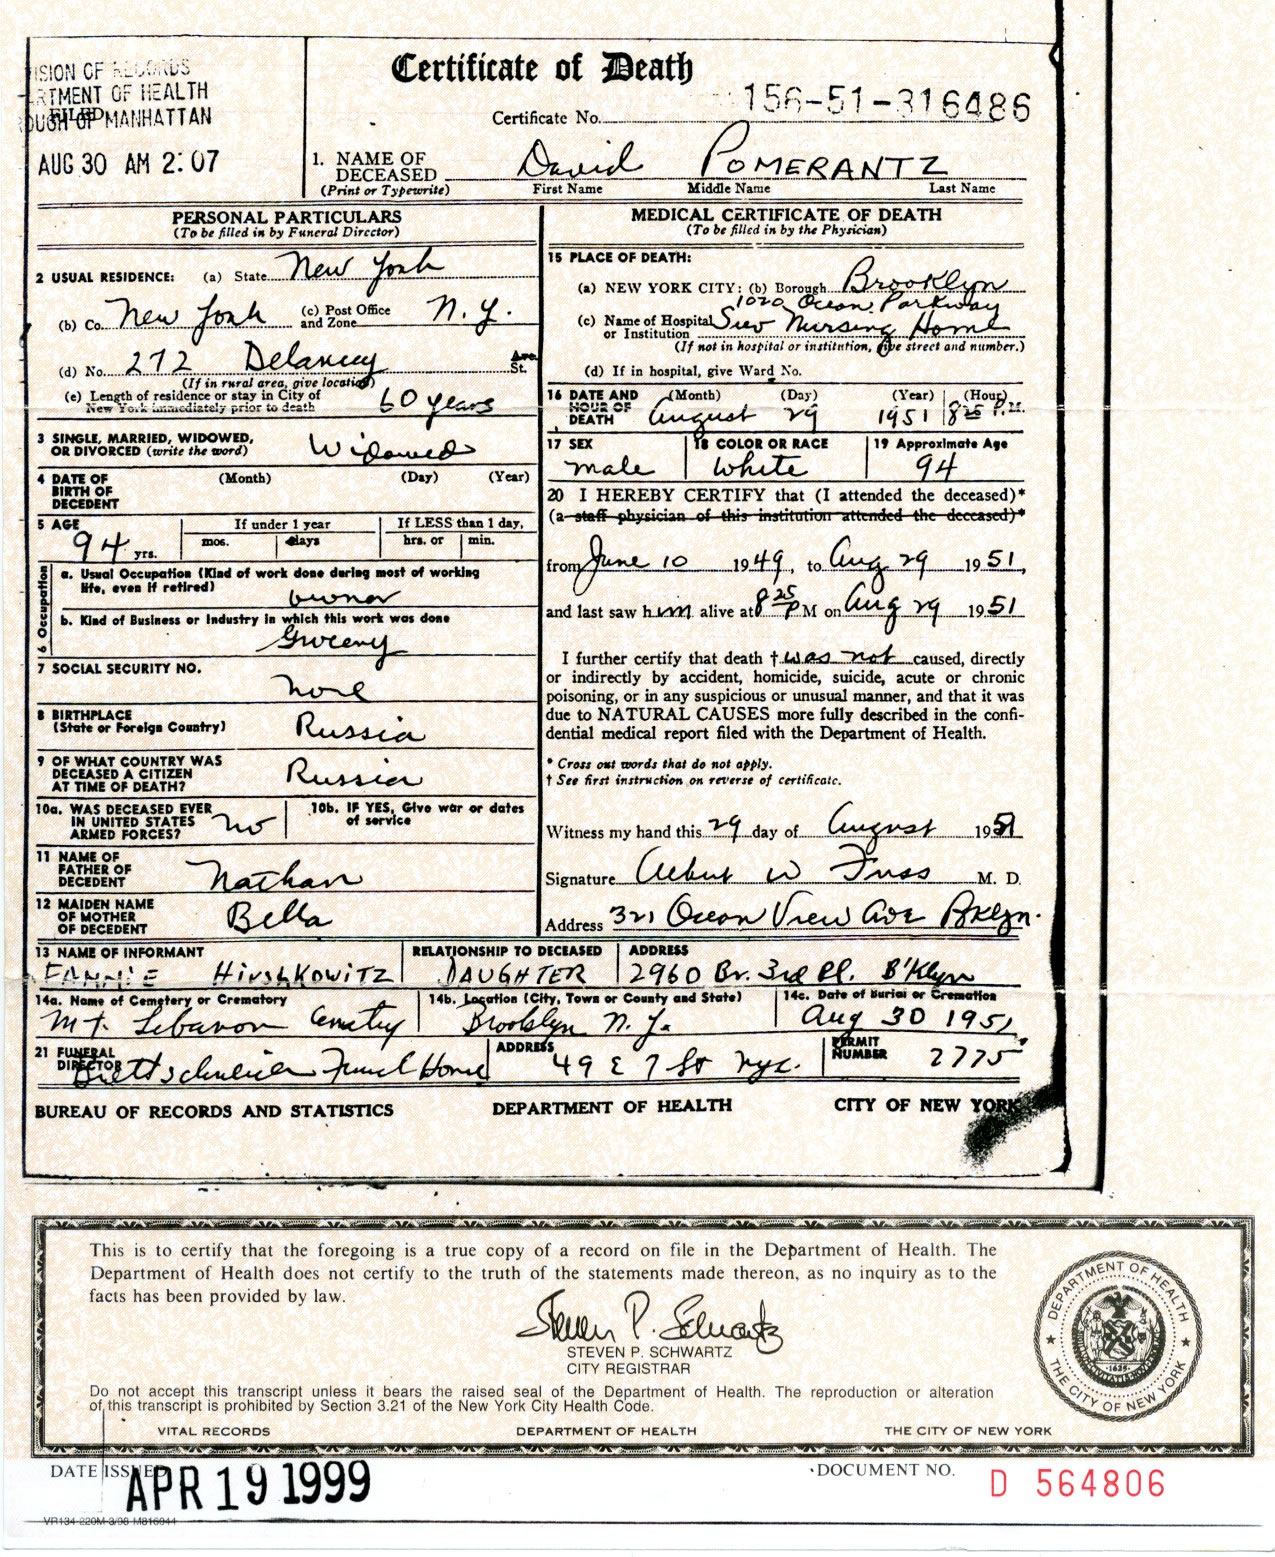 DIVISION OF RECORDS
DEPARTMENT OF HEALTH
FILED
BOROUGH OF MANHATTAN
AUG 30 AM 2:07
Certificate of Death
Certificate No. 156-51-316486
1. NAME OF DECEASED David POMERANTZ
(Print or Typewrite) First Name Middle Name Last Name
PERSONAL PARTICULARS
(To be filled in by Funeral Director)
2 USUAL RESIDENCE: (a) State New York
(b) Co. New York (c) Post Office and Zone N.Y.
(d) No. 272 Delancey Ave. St.
(If in rural area, give location)
(e) Length of residence or stay in City of
New York immediately prior to death 60 years
3 SINGLE, MARRIED, WIDOWED,
OR DIVORCED (write the word) Widowed
4 DATE OF BIRTH OF DECEDENT (Month) (Day) (Year)
5 AGE 94 yrs. If under 1 year mos. days If LESS than 1 day, hrs. or min.
6 Occupation
a. Usual Occupation (Kind of work done during most of working
life, even if retired) owner
b. Kind of Business or Industry in which this work was done
Grocery
7 SOCIAL SECURITY NO.
None
8 BIRTHPLACE
(State or Foreign Country) Russia
9 OF WHAT COUNTRY WAS
DECEASED A CITIZEN
AT TIME OF DEATH? Russia
10a. WAS DECEASED EVER
IN UNITED STATES
ARMED FORCES? No
10b. IF YES, Give war or dates
of service
11 NAME OF
FATHER OF
DECEDENT Nathan
12 MAIDEN NAME
OF MOTHER
OF DECEDENT Bella
MEDICAL CERTIFICATE OF DEATH
(To be filled in by the Physician)
15 PLACE OF DEATH:
(a) NEW YORK CITY: (b) Borough Brooklyn
1020 Ocean Parkway
(c) Name of Hospital or Institution Nursing Home
(If not in hospital or institution, give street and number.)
(d) If in hospital, give Ward No.
16 DATE AND HOUR OF DEATH (Month) (Day) (Year) (Hour)
August 29 1951 8 25 P.M.
17 SEX male
18 COLOR OR RACE White
19 Approximate Age 94
20 I HEREBY CERTIFY that (I attended the deceased)*
(a staff physician of this institution attended the deceased)*
from June 10 1949, to Aug 29 1951,
and last saw him alive at 8 25 P M on Aug 29 1951
I further certify that death † was not caused, directly
or indirectly by accident, homicide, suicide, acute or chronic
poisoning, or in any suspicious or unusual manner, and that it was
due to NATURAL CAUSES more fully described in the confi-
dential medical report filed with the Department of Health.
* Cross out words that do not apply.
† See first instruction on reverse of certificate.
Witness my hand this 29 day of August 1951
Signature Albert W Fuss M. D.
Address 321 Ocean View Ave Bklyn.
13 NAME OF INFORMANT RELATIONSHIP TO DECEASED ADDRESS
FANNIE HirshKowitz DAUGHTER 2960 Br. 3rd Pl. B'Klyn
14a. Name of Cemetery or Crematory 14b. Location (City, Town or County and State) 14c. Date of Burial or Cremation
Mt. Lebanon Cemetry Brooklyn N.Y. Aug 30 1951
21 FUNERAL DIRECTOR ADDRESS PERMIT NUMBER
Brettschneider Funeral Home 49 E 7 St NYC. 2775
BUREAU OF RECORDS AND STATISTICS DEPARTMENT OF HEALTH CITY OF NEW YORK
This is to certify that the foregoing is a true copy of a record on file in the Department of Health. The
Department of Health does not certify to the truth of the statements made thereon, as no inquiry as to the
facts has been provided by law.
Steven P. Schwartz
STEVEN P. SCHWARTZ
CITY REGISTRAR
Do not accept this transcript unless it bears the raised seal of the Department of Health. The reproduction or alteration
of this transcript is prohibited by Section 3.21 of the New York City Health Code.
VITAL RECORDS DEPARTMENT OF HEALTH THE CITY OF NEW YORK
DEPARTMENT OF HEALTH
THE CITY OF NEW YORK
1625
DATE ISSUED APR 19 1999 DOCUMENT NO. D 564806
VR134 220M-3/98 M816044